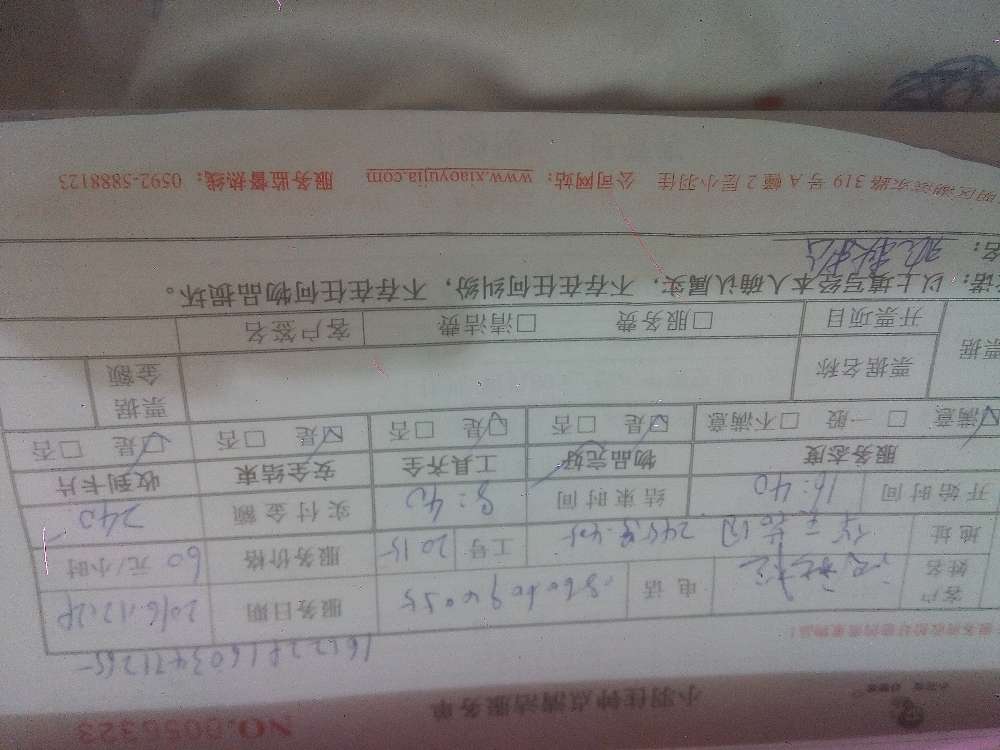 小羽佳钟点清洁服务单 NO.0056323
161228160347126
客户姓名 电话 服务日期 2016.12.28
地址 工号 2015 服务价格 60 元/小时
开始时间 16:40 结束时间 8:40 实付金额 240
服务态度 物品完好 工具齐全 安全结束 收到卡片
☑满意 □一般 □不满意 ☑是 □否 ☑是 □否 ☑是 □否 ☑是 □否
票据 票据名称 票据金额
开票项目 □服务费 □清洁费 客户签名
诺:以上填写经本人确认属实,不存在任何纠纷,不存在任何物品损坏。
名:
明区湖滨东路 319 号 A 幢 2 层小羽佳 公司网站:www.xiaoyujia.com 服务监督热线:0592-5888123